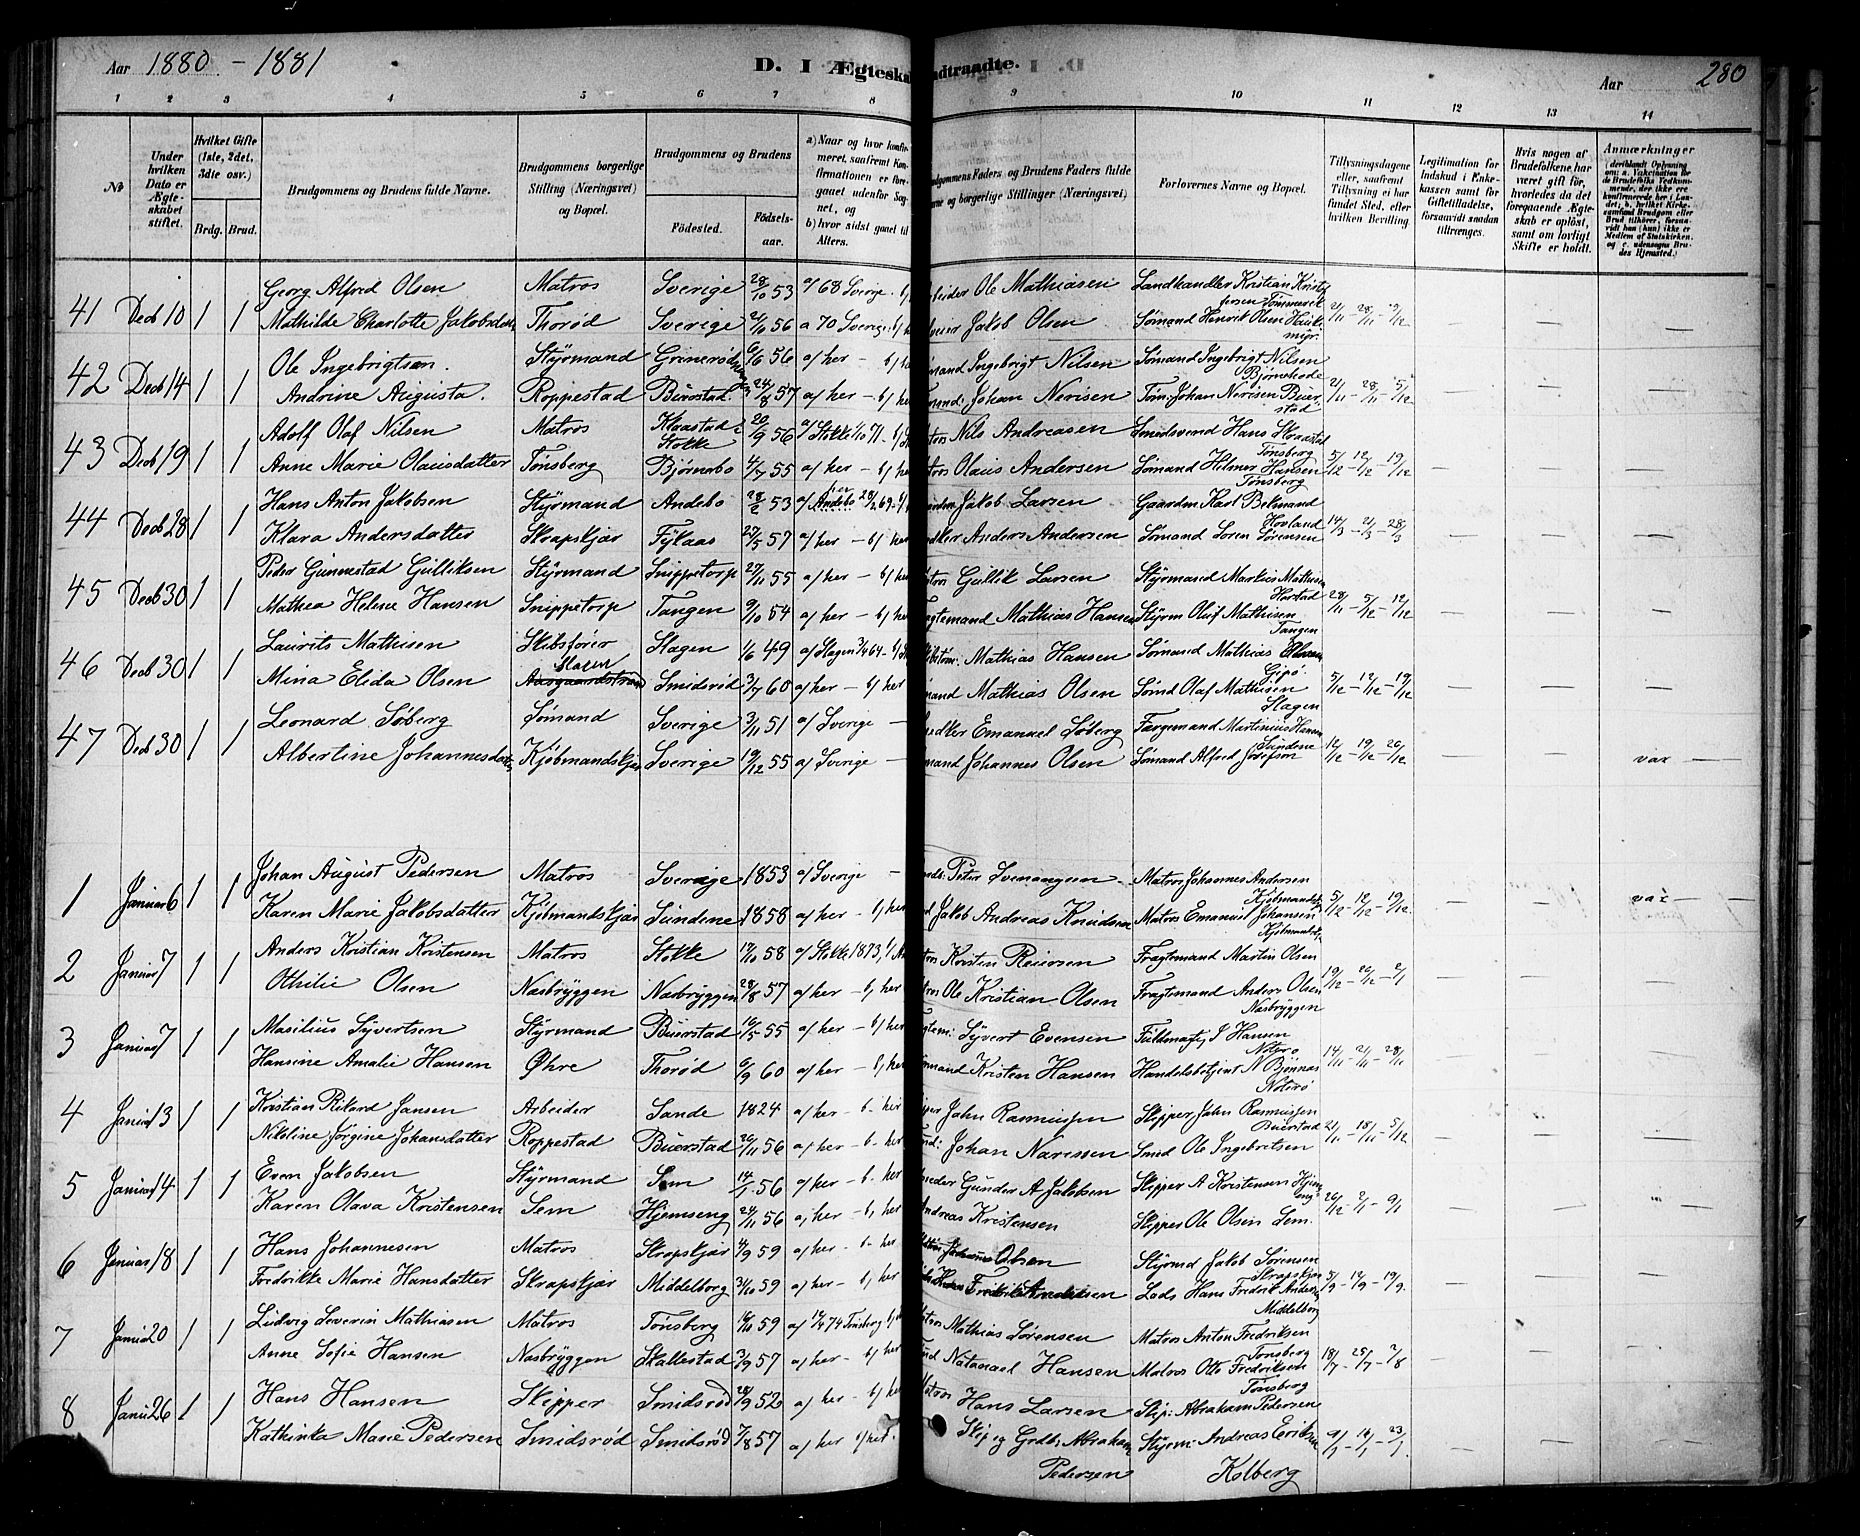 Aar 1880 - 1881
D. I Ægteska
ndtraadte.
Aar 280
1 2 3 4 5 6 7 8 9 10 11 12 13 14
No
Under hvilken Dato er Ægteskabet stiftet.
Hvilket Gifte (1ste, 2det, 3die osv.)
Brdg. Brud.
Brudgommens og Brudens fulde Navne.
Brudgommens borgerlige Stilling (Næringsvei) og Bopæl.
Brudgommens og Brudens
Fødested.
Fødselsaar.
a) Naar og hvor konfirmeret, saafremt Konfirmationen er foregaaet udenfor Sognet, og
b) hvor sidst gaaet til Alters.
udgommens Faders og Brudens Faders fulde
vne og borgerlige Stillinger (Næringsvei)
Forlovernes Navne og Bopæl.
Tillysningsdagene eller, saafremt Tillysning ei har fundet Sted, efter hvilken Bevilling.
Legitimation for Indskud i Enkekassen samt for Giftetilladelse, forsaavidt saadan tiltrænges.
Hvis nogen af Brudefolkene har været gift før, hvorledes da det foregaaende Ægteskab er opløst, samt om lovligt Skifte er holdt.
Anmærkninger
41 Decb 10 1 1 Georg Alfred Olsen Matros Sverige 28/10 53 a/ 68 Sverige beider Ole Mathiasen Landhandler Kristian
Mathilde Charlotte Jakobsdatter Thorød Sverige 21/11 56 a 70 Sverige Jakob Olsen Sømand Henrik Olsen 21/11 - 28/11 - 5/12
42 Decb 14 1 1 Ole Ingebrigtsen Styrmand Grinerød 6/6 56 a/ her - b/ her mand Ingebrigt Nilsen Sømand Ingebrigt Nilsen
Andrine Augusta. Roppestad Buerstad 24/8 57 a/ her - b/ her Johan Nerisen Tøm: Johan Nerisen Buerstad 21/11 - 28/11 - 5/12
43 Decb 19 1 1 Adolf Olaf Nilsen Matros Klaastad Stokke 20/9 56 a/ Stokke 1/10 71 tros Nils Andreasen Smedsvend Hans
Tønsberg
Anne Marie Olausdatter Tønsberg Bjørnebo 4/7 55 a/ her - b/ her tros Olaus Andersen Sømand Helmer Hansen Tønsberg 5/12 - 12/12 - 19/12
44 Decb 28 1 1 Hans Anton Jakobsen Styrmand Andebo 28/2 53 Andebo Jakob Larsen Gaardm Karl
Hovland
Klara Andersdatter Skrapskjær Fylaas 27/5 57 a/ her - b/ her Anders Andersen Sømand Soren Sørensen 14/3 - 21/3 - 28/3
45 Decb 30 1 1 Peder Gunnestad Gulliksen Styrmand Snippetorp 27/11 55 a/ her - b/ her Gullik Larsen Styrmand Markus Mathisen
Mathea Helene Hansen Snippetorp Tangen 9/10 54 a/ her - b/ her Fragtemand Mathias Hansen Styrm Oluf Mathisen Tangen 28/11 - 5/12 - 12/12
46 Decb 30 1 1 Laurits Mathisen Skibsfører Slagen 1/6 49 a/ Slagen Mathias Hansen Sømand Mathias
Mina Elida Olsen Slagen Smidsrød 3/7 60 a/ her - b/ her mand Mathias Olsen Sømd Olaf Mathisen Slagen 5/12 - 12/12 - 19/12
47 Decb 30 1 1 Leonard Søberg Sømand Sverige 3/11 51 a/ Sverige - Emanuel Søberg Færgemand Martinius Hansen
Sundene
Albertine Johannesdatter Kjøbmandskjær Sverige 19/12 55 a/ Sverige - mand Johannes Olsen Sømand Alfred Josefson 12/12 - 19/12 - 26/12 vax
1 Januar 6 1 1 Johan August Pedersen Matros Sverige 1853 a/ Sverige - Peter Matros Johannes Andersen
Karen Marie Jakobsdatter Kjøbmandskjær Sundene 1858 a/ her - b/ her Jakob Andreas Knudsen Matros Emanuel Johansen 5/12 - 12/12 - 19/12 vax
2 Januar 7 1 1 Anders Kristian Kristensen Matros Stokke 17/10 58 a/ Stokke 1873 tros Kristen Reiersen Fragtemand Martin Olsen
Othilie Olsen Næsbryggen Næsbryggen 28/8 57 a/ her - b/ her tros Ole Kristian Olsen Fragtemand Anders Olsen Næsbryggen 19/12 - 26/12 - 2/1
3 Januar 7 1 1 Masilius Syvertsen Styrmand Buerstad 16/5 55 a/ her - b/ her Syvert Evensen Fuldmægt. J Hansen
Nøtero
Hansine Amalie Hansen Øhre Thorød 6/9 60 a/ her - b/ her mand Kristen Hansen Handelsbetjent N Bjønnæs Nøterø 14/11 - 21/11 - 28/11
4 Januar 13 1 1 Kristian Rikard Jansen Arbeider Sande 1824 a/ her - b. her Jahn Rasmussen Skipper Jahn Rasmussen
Buerstad
Nikoline Jørgine Johansdatter Roppestad Buerstad 20/11 56 a/ her - b. her Johan Narissen Smed Ole Ingebretsen 21/11 - 18/11 - 5/12
5 Januar 14 1 1 Even Jakobsen Styrmand Sem 14/1 56 a/ her - b. her Gunder A Jakobsen Skipper A Kristensen
Karen Olava Kristensen Sem Hjemseng 24/11 56 a/ her - b/ her ndreas Kristensen Skipper Ole Olsen Sem. 26/12 - 2/1 - 9/1
6 Januar 18 1 1 Hans Johannesen Matros Skrapskjær 4/9 59 a/ her - b. her Olsen Styrmd Jakob Sørensen
Skrapskjær
Fredrikke Marie Hansdatter Skrapskjær Middelborg 31/10 59 a/ her - b/ her Lods Hans Fredrik Middelborg 5/9 - 12/9 - 19/9
7 Januar 20 1 1 Ludvig Severin Mathiasen Matros Tønsberg 16/10 59 74 Tønsberg tros Mathias Sørensen Matros Anton Fredriksen
Tønsberg
Anne Sofie Hansen Næsbryggen Skallestad 3/9 57 a/ her - b/ her Natanael Hansen Matros Otto Fredriksen Tønsberg 18/7 - 25/7 - 2/8
8 Janu 26 1 1 Hans Hansen Skipper Smidsrød 28/9 52 a/ her - b/ her Matros Hans Larsen Skip: Abraham Pedersen
Kathinka Marie Pedersen Smidsrød Smidsrød 7/8 57 a/ her b/ her Skip og Grdb. Abraham Pedersen Styrm: Andreas Eriksen Kolberg 9/1 - 16/1 - 23/1